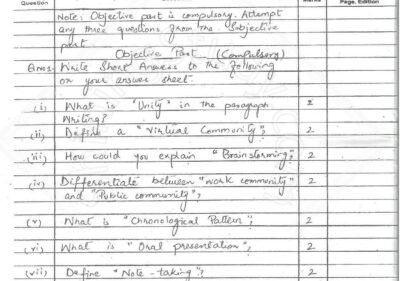 Question Marks Page. Edition
Note: Objective part is compulsory. Attempt
any three questions from the Subjective
part
Objective Part (Compulsory)
Qno1. Write Short Answers to the following
on your answer sheet.
(i) What is "Unity" in the paragraph 2
Writing?
(ii) Define a "Virtual Community"; 2
(iii) How could you explain "Brainstorming"; 2
(iv) Differentiate between "work community" 2
and "Public community";
(v) What is "Chronological Pattern"; 2
(vi) What is "Oral presentation"; 2
(vii) Define "Note-taking"; 2